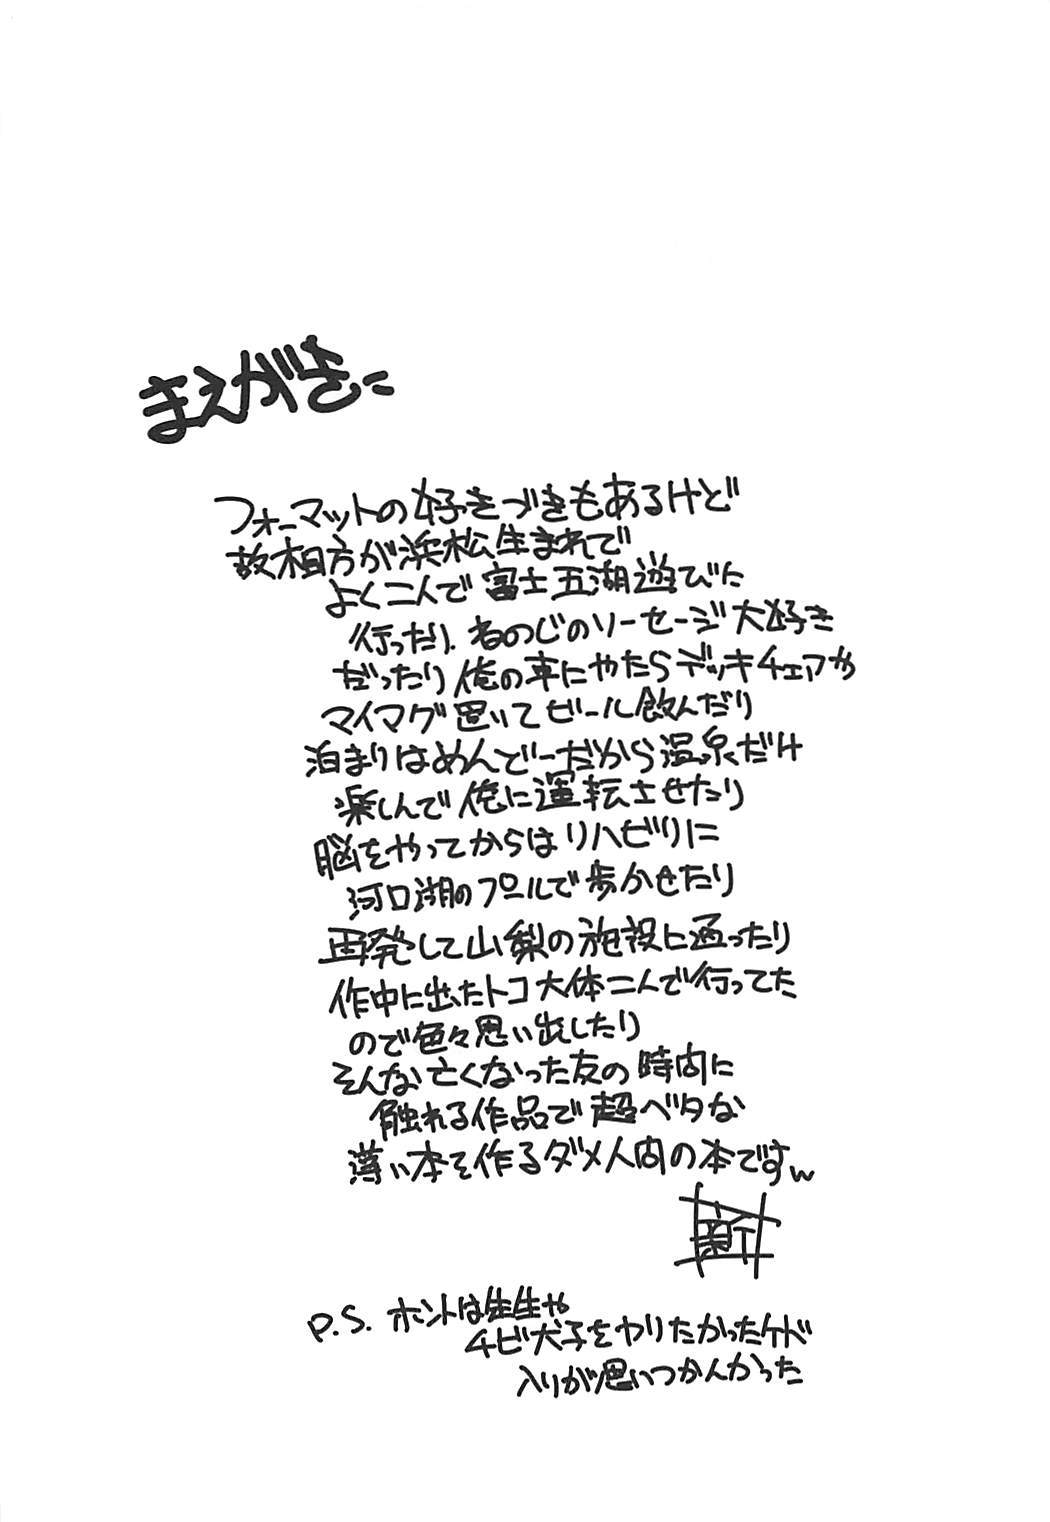 まえがき
フォーマットの好きづきもあるけど
故相方が浜松生まれで
よく二人で富士五湖遊びに
行ったり、のじのソーセージ大好き
だったり俺の車にやたらデッキチェアや
マイマグ置いてビール飲んだり
泊まりはめんどーだから温泉だけ
楽しんで俺に運転させたり
脳をやってからはリハビリに
河口湖のプールで歩かせたり
再発して山梨の施設に通ったり
作中に出たトコ大体二人で行ってた
ので色々思い出したり
そんな亡くなった友の時間に
触れる作品で超ベタな
薄い本を作るダメ人間の本ですw
P.S. ホントは先生や
チビ犬子をやりたかったケド
入りが思いつかんかった